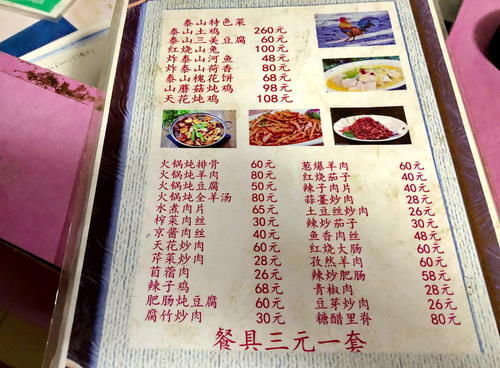 泰山特色菜
泰山土鸡 260元
泰山三美豆腐 60元
红烧山兔 100元
炸泰山河鱼 48元
炸泰山荷香 80元
泰山槐花饼 68元
山蘑菇炖鸡 98元
天花炖鸡 108元
火锅炖排骨 60元
火锅炖羊肉 80元
火锅炖豆腐 50元
火锅炖全羊汤 80元
水煮肉片 65元
榨菜肉丝 30元
京酱肉丝 40元
天花炒肉 60元
芹菜炒肉 28元
苜蓿肉 26元
辣子鸡 68元
肥肠炖豆腐 60元
腐竹炒肉 30元
葱爆羊肉 60元
红烧茄子 40元
辣子肉片 40元
蒜薹炒肉 28元
土豆丝炒肉 26元
辣炒茄子 30元
鱼香肉丝 48元
红烧大肠 60元
孜然羊肉 60元
辣炒肥肠 58元
青椒肉 26元
豆芽炒肉 26元
糖醋里脊 80元
餐具三元一套